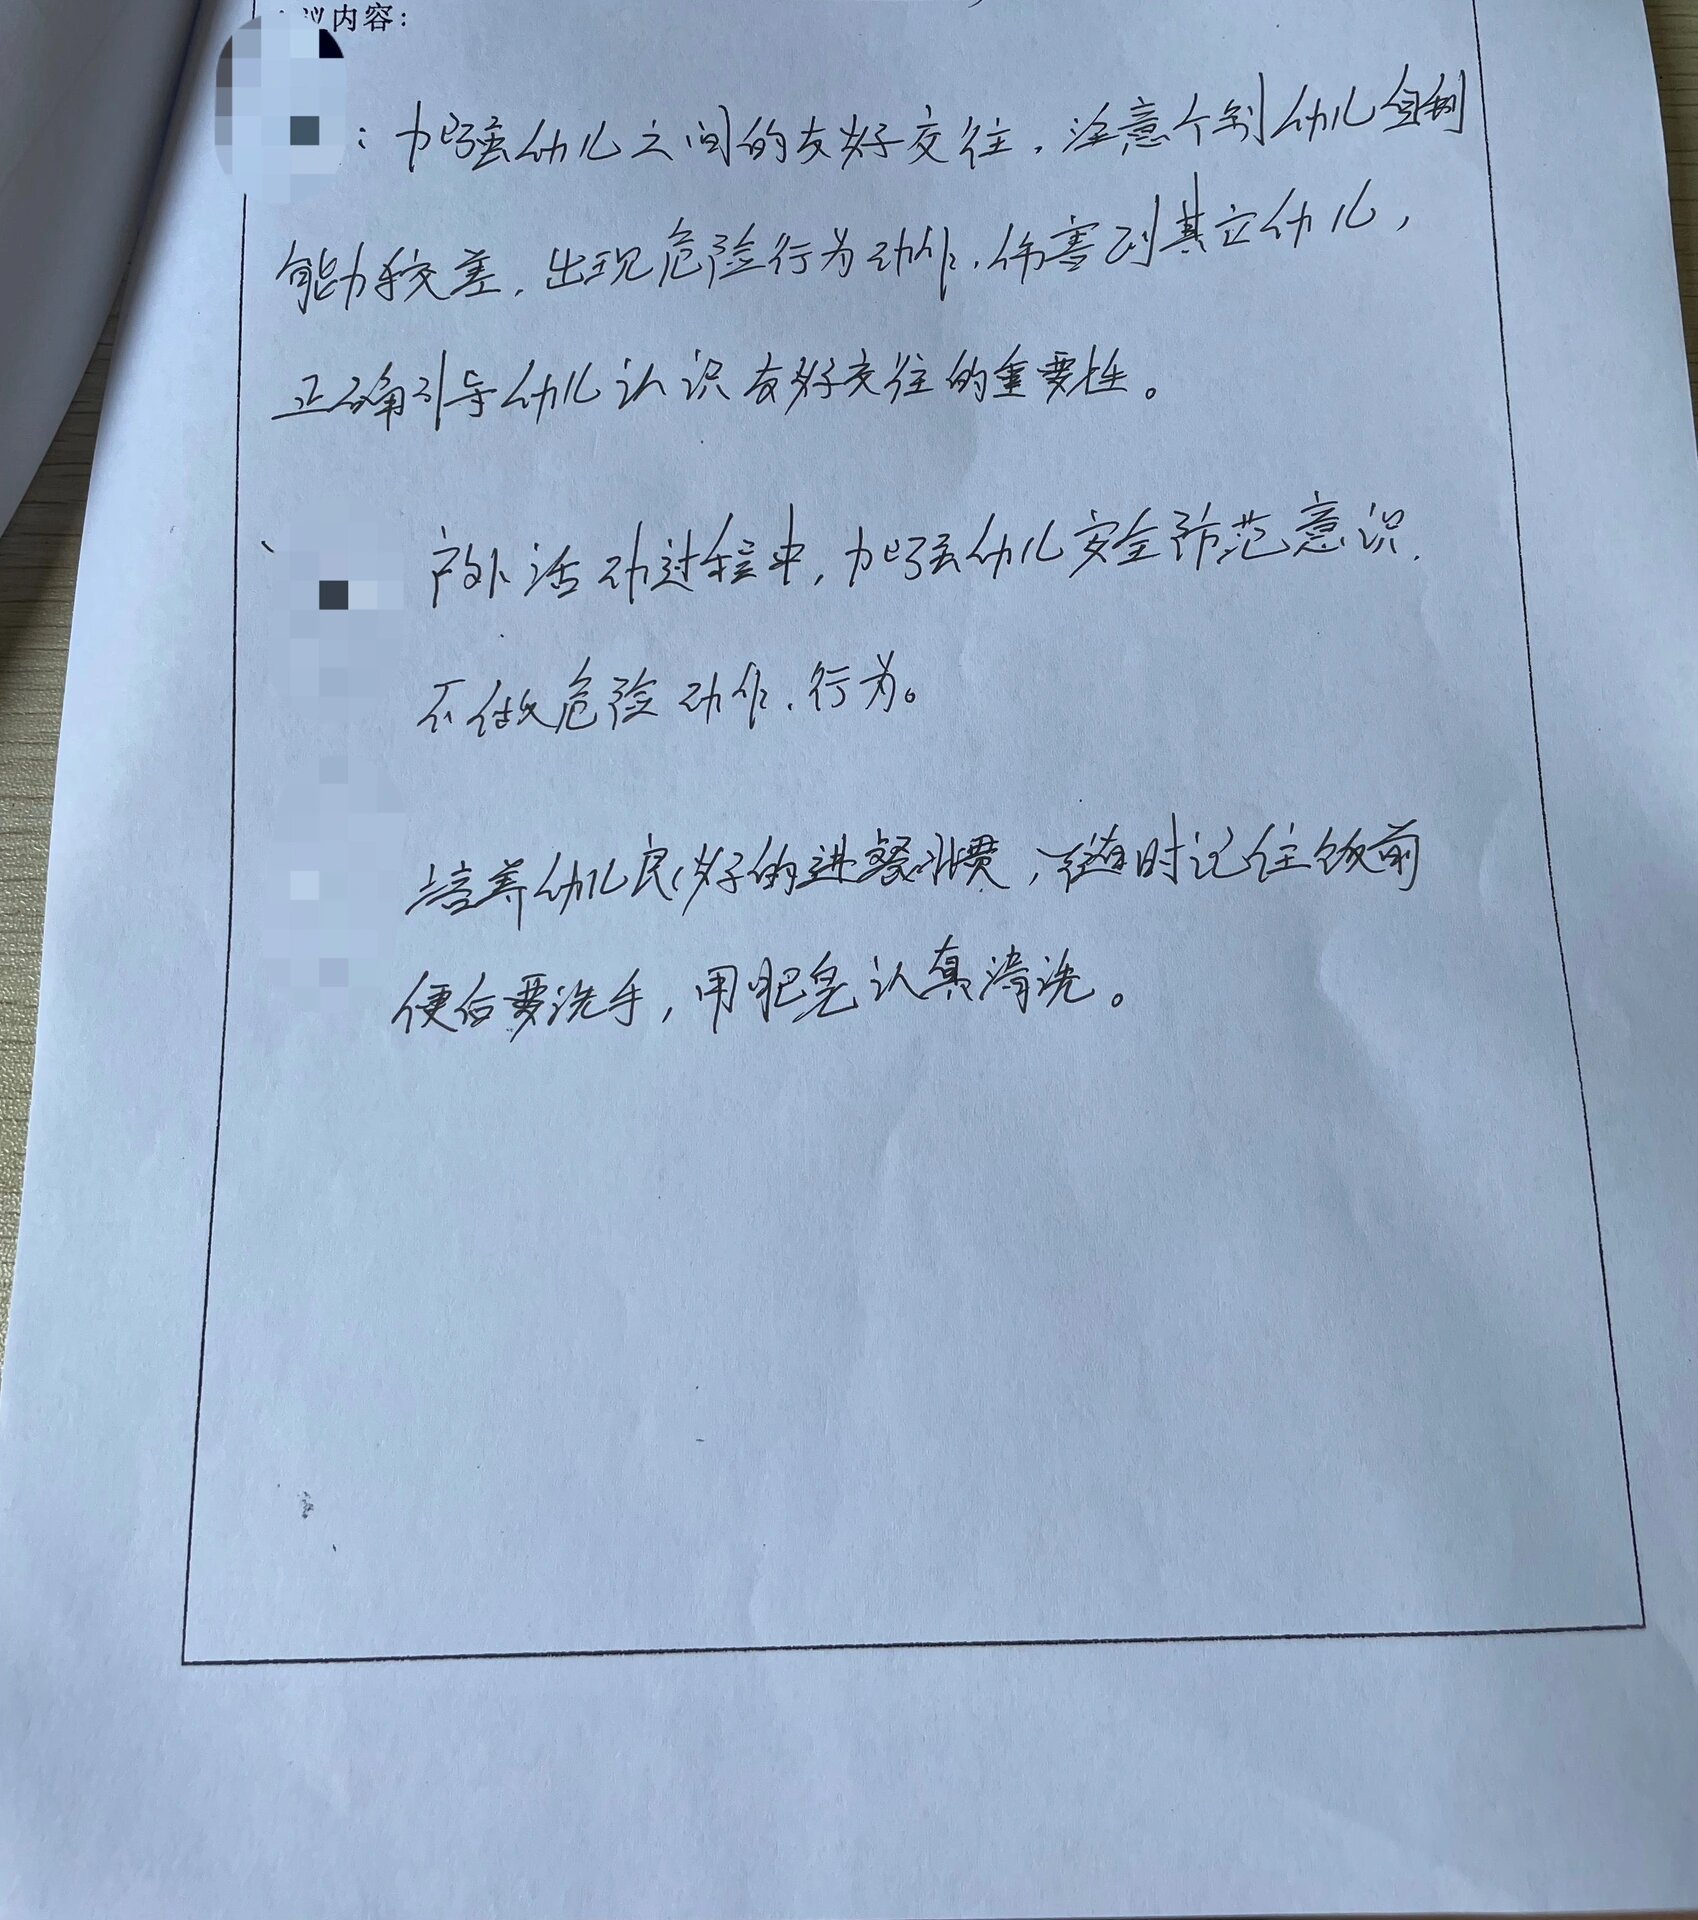 议内容：
：加强幼儿之间的友好交往，注意个别幼儿自制
能力较差，出现危险行为动作，伤害到其它幼儿，
正确引导幼儿认识友好交往的重要性。
户外活动过程中，加强幼儿安全防范意识，
不做危险动作、行为。
培养幼儿良好的进餐习惯，随时记住饭前
便后要洗手，用肥皂认真清洗。